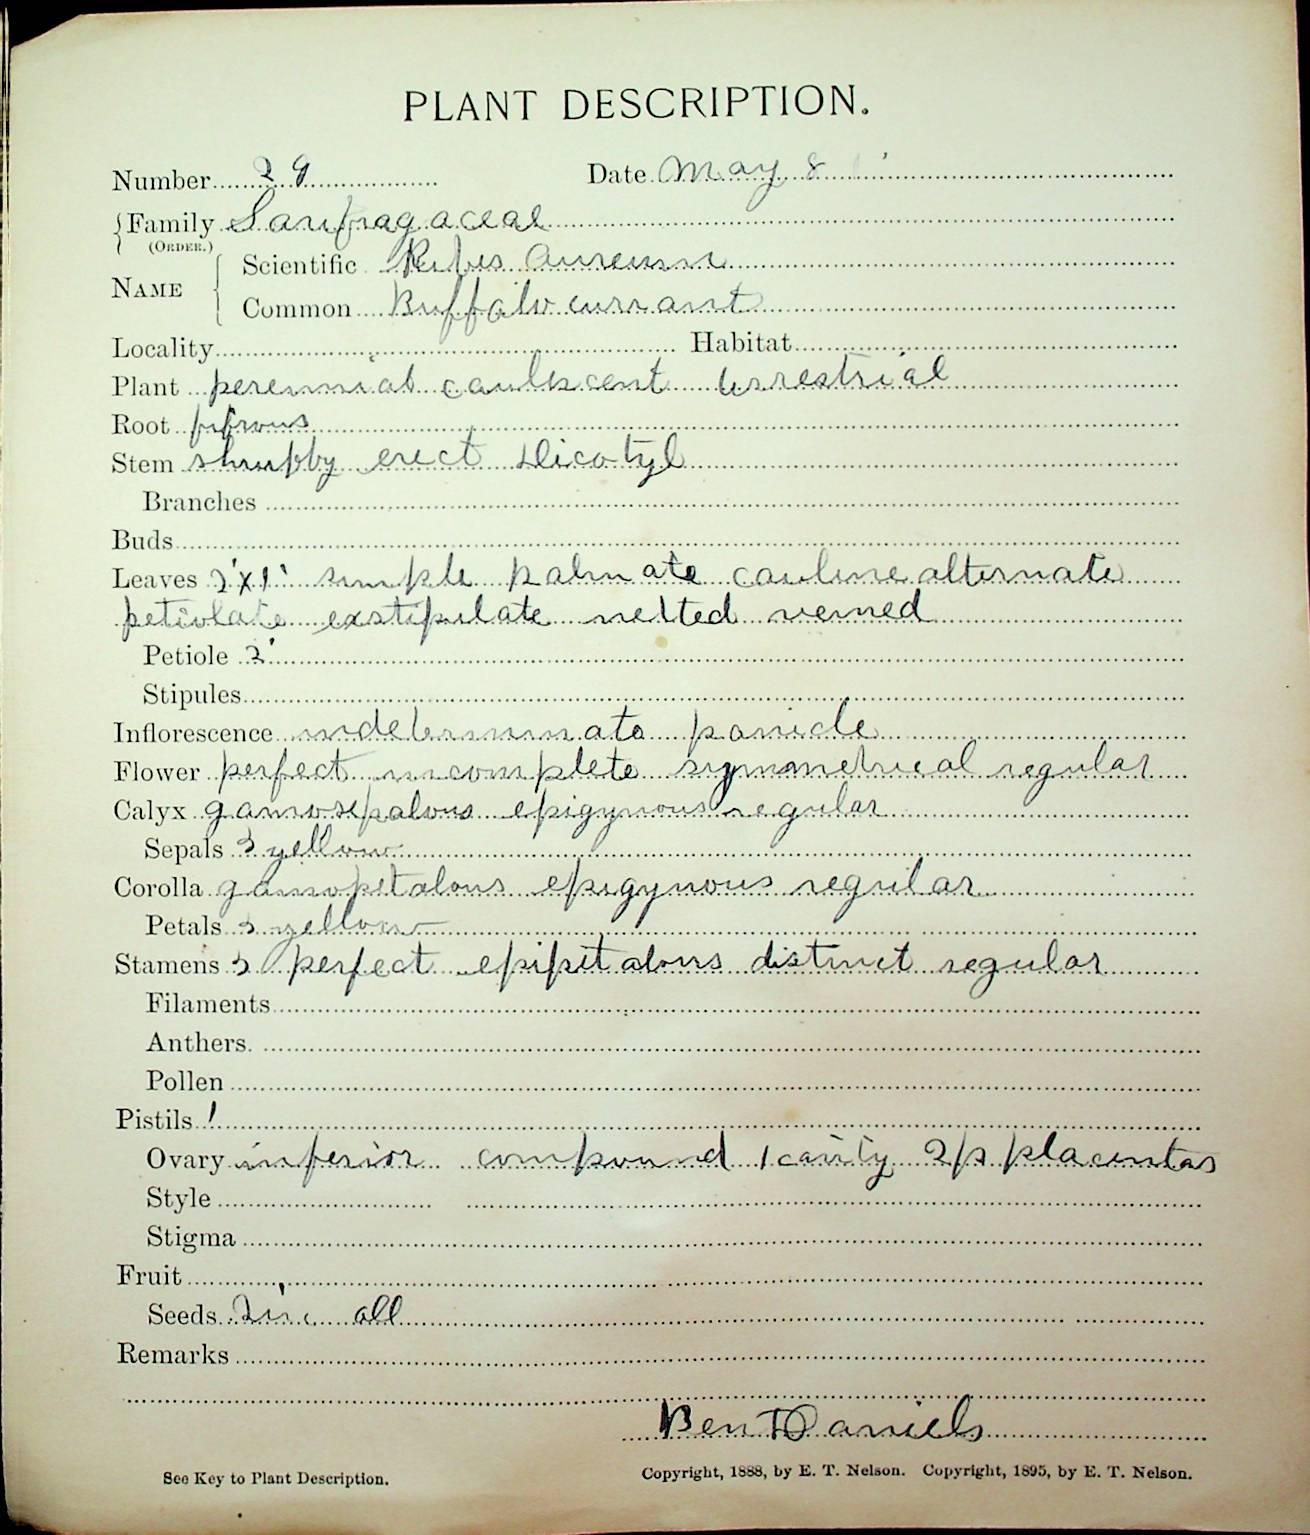 PLANT DESCRIPTION.
Number 29 Date May 8
Family Saxifragaceae
(ORDER.)
Scientific Ribes Aureum
NAME
Common Buffalo currant
Locality Habitat
Plant perennial caulescent terrestrial
Root fibrous
Stem shrubby erect Dicotyl
Branches
Buds
Leaves 2'x1' simple palmate cauline alternate
petiolate exstipulate netted veined
Petiole 2'
Stipules
Inflorescence indeterminate panicle
Flower perfect incomplete symmetrical regular
Calyx gamosepalous epigynous regular
Sepals 5 yellow
Corolla gamopetalous epigynous regular
Petals 5 yellow
Stamens 5 perfect epipetalous distinct regular
Filaments
Anthers.
Pollen
Pistils 1
Ovary inferior compound 1 cavity 2 p placentas
Style
Stigma
Fruit
Seeds all
Remarks
Ben T Daniels
See Key to Plant Description. Copyright, 1888, by E. T. Nelson. Copyright, 1895, by E. T. Nelson.